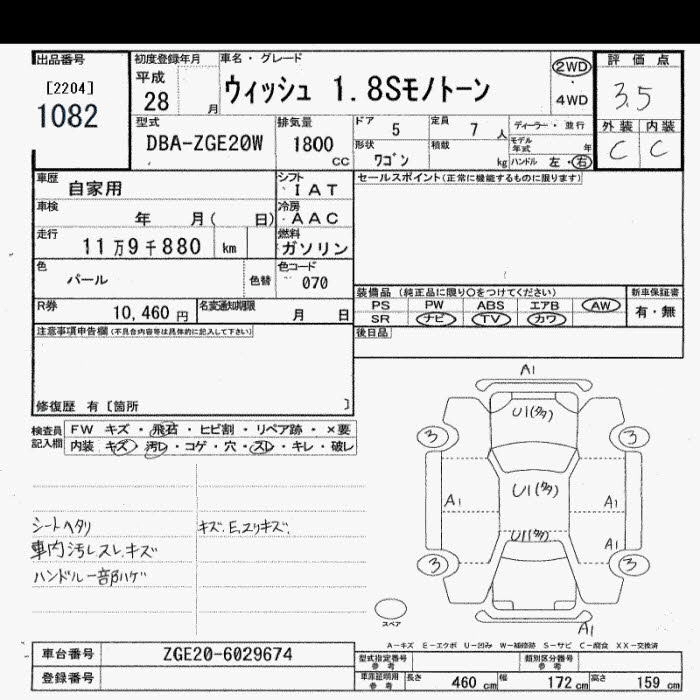 出品番号
[2204]
1082
初度登録年月
平成
28 月
車名・グレード
ウィッシュ 1.8Sモノトーン
2WD
・
4WD
評価点
3.5
外装 内装
C C
型式
DBA-ZGE20W
排気量
1800
CC
ドア 5
定員 7 人
形状
ワゴン
積載
kg
ディーラー・並行
モデル年式 年
ハンドル 左・右
車歴 自家用
シフト
IAT
車検
年 月( 日)
冷房
AAC
走行
11万9千880 km
燃料
ガソリン
色
パール
色替
色コード
070
R券
10,460 円
名変通知期限
月 日
セールスポイント(正常に機能するものに限ります)
装備品 (純正品に限り〇をつけてください)
PS PW ABS エアB AW
SR ナビ TV カワ
新車保証書
有・無
後日品
注意事項申告欄(不具合内容等は具体的に記入して下さい)
修復歴 有〔箇所 〕
検査員
記入欄
FW キズ・飛石・ヒビ割・リペア跡・×要
内装 キズ・汚レ・コゲ・穴・スレ・キレ・破レ
シートヘタリ
車内汚レスレ、キズ
ハンドル一部ハゲ
キズ、E、スリキズ、
A1
U1(タタ)
3
3
U1(タタ)
A1
A1
U1(タタ)
A1
3
3
A1
スペア
A-キズ E-エクボ U-凹み W-補修跡 S-サビ C-腐食 XX-交換済
車台番号 ZGE20-6029674
登録番号
型式指定番号
参考
類別区分番号
参考
車庫証明用
参考
長さ 460 cm
幅 172 cm
高さ 159 cm